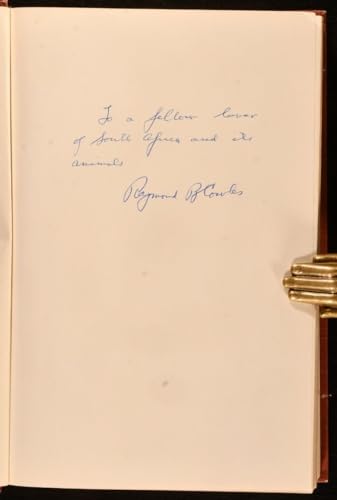 To a fellow lover
of South Africa and its
animals
Raymond B Cowles